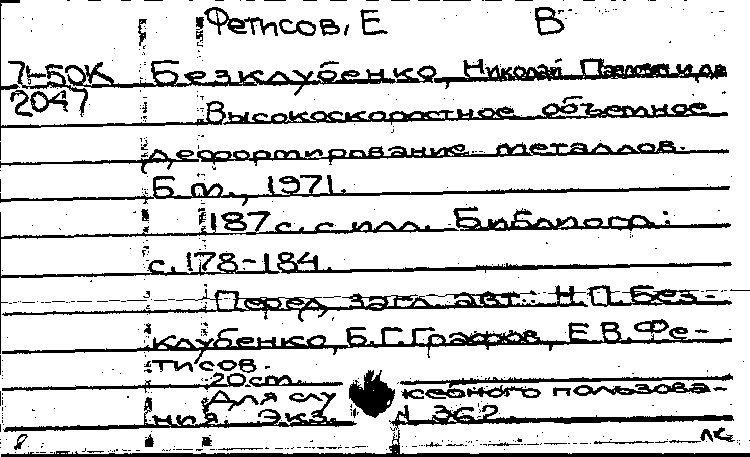 Фетисов, Е В
71-50К Безклубенко, Николай Павлович и др
2047 Высокоскоростное объемное
деформирование металлов.
Б.м., 1971.
187 с. с илл. Библиогр.:
с. 178-184.
Перед загл. авт.: Н.П. Без-
клубенко, Б.Г. Графов, Е.В. Фе-
тисов.
20 см.
Для служебного пользова-
ния. Экз. N 362